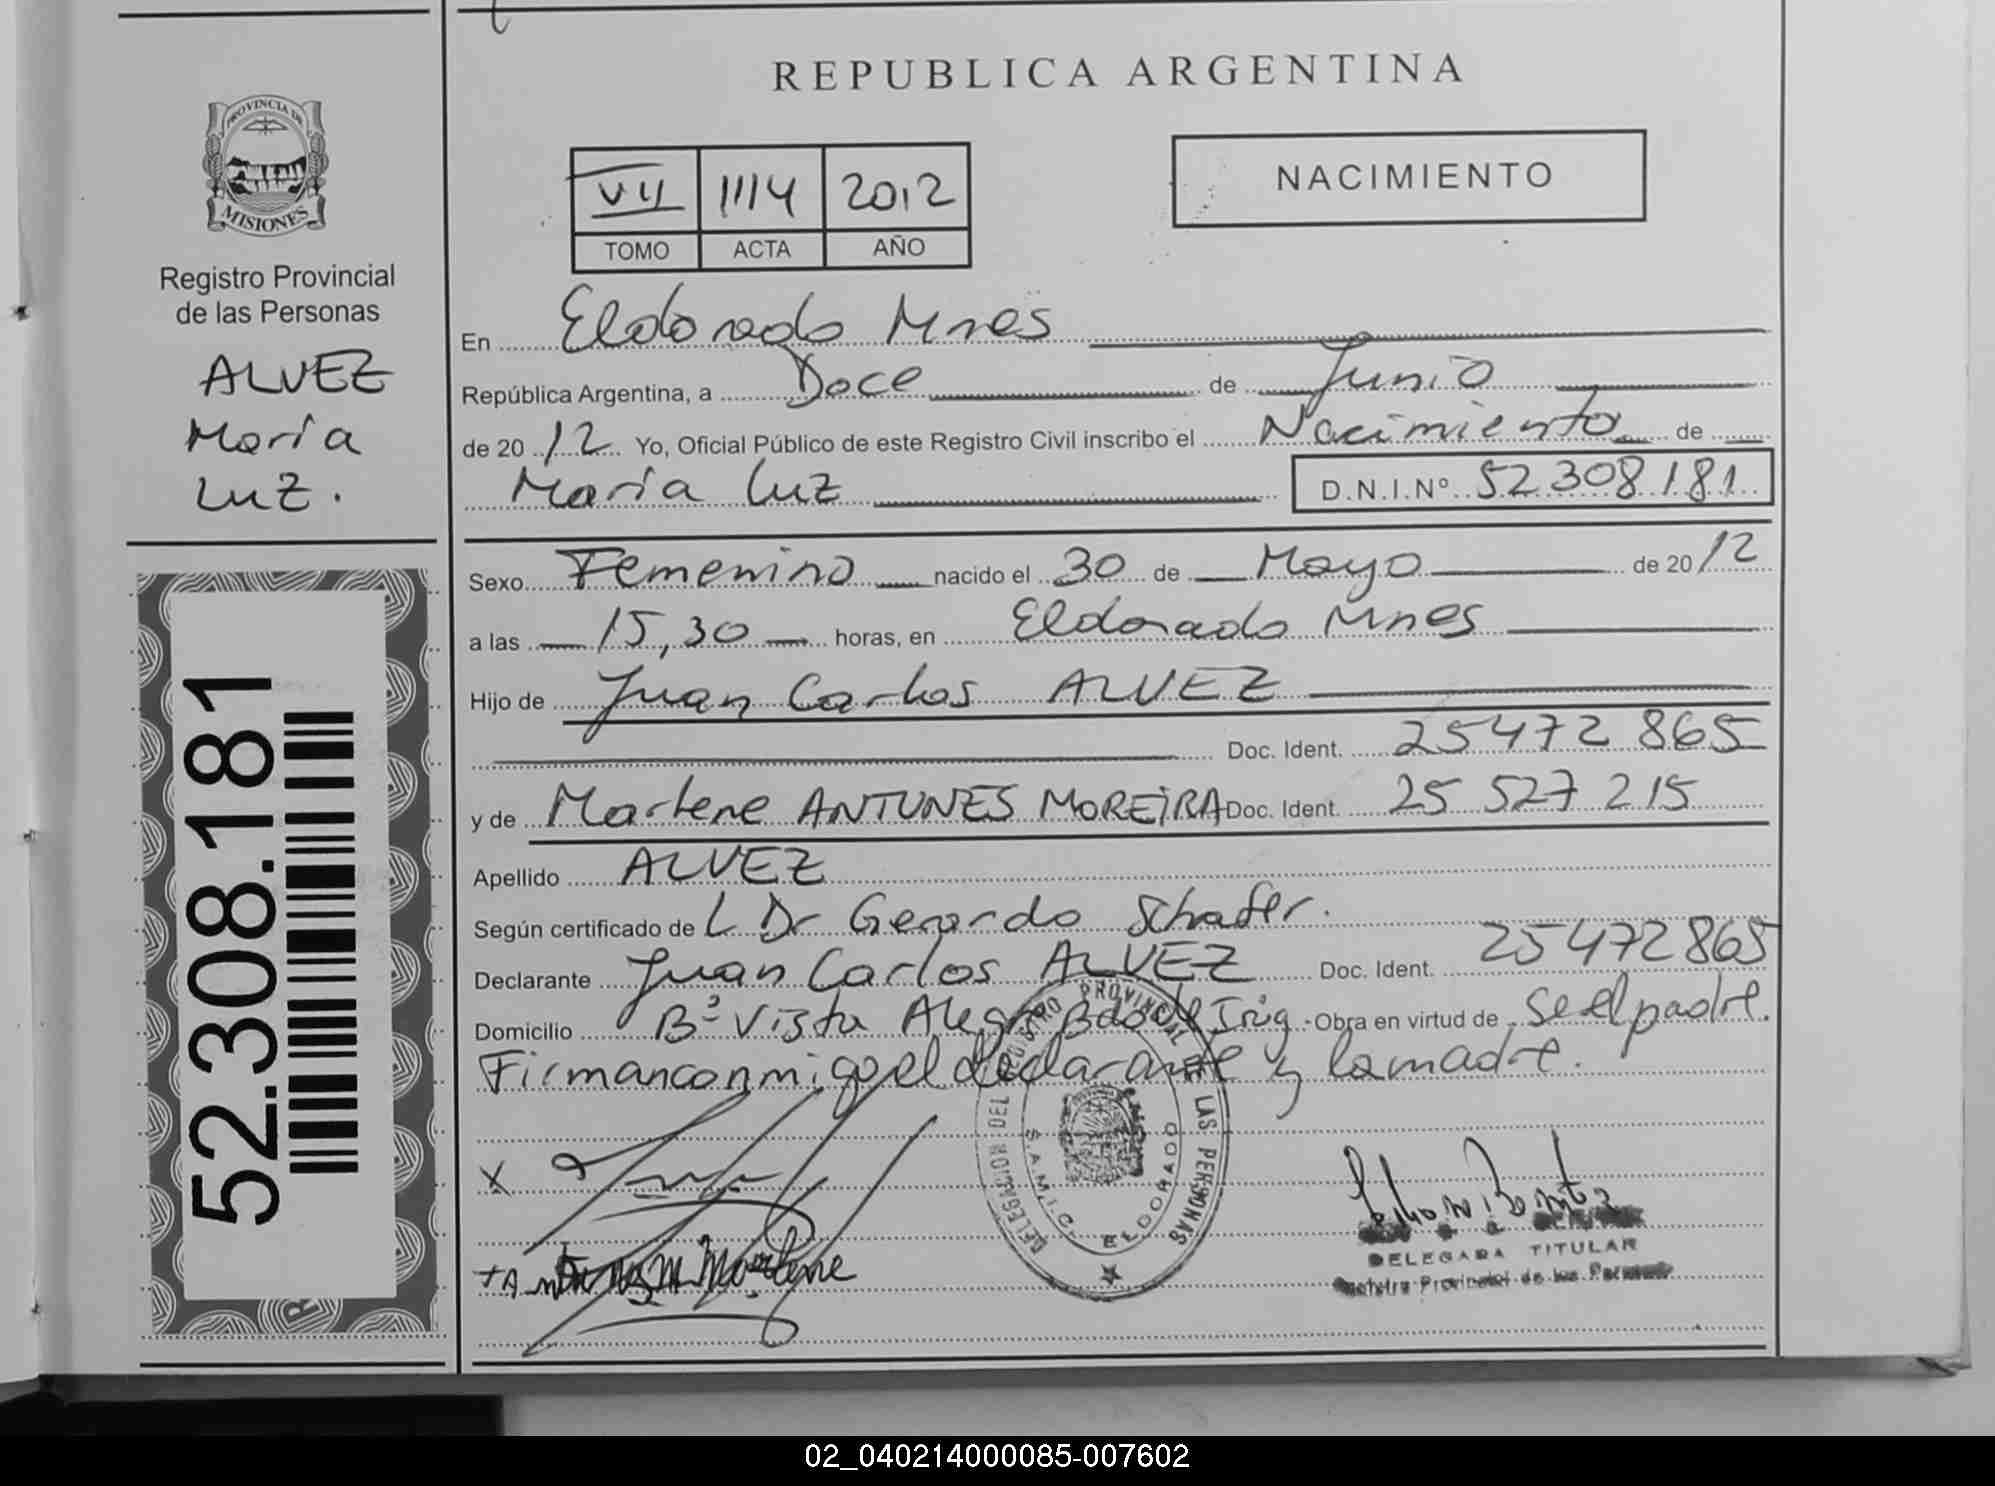 REPUBLICA ARGENTINA
PROVINCIA DE
MISIONES
Registro Provincial
de las Personas
ALVEZ
María
Luz.
52.308.181
VII 1114 2012
TOMO ACTA AÑO
NACIMIENTO
En Eldorado Mnes
República Argentina, a Doce de Junio
de 2012 Yo, Oficial Público de este Registro Civil inscribo el Nacimiento de
María Luz D.N.I.Nº 52.308.181
Sexo Femenino nacido el 30 de Mayo de 2012
a las 15,30 horas, en Eldorado Mnes
Hijo de Juan Carlos ALVEZ
Doc. Ident. 25472 865
y de Marlene ANTUNES MOREIRA Doc. Ident. 25 527 215
Apellido ALVEZ
Según certificado de L Dr Gerardo Schafer.
Declarante Juan Carlos ALVEZ Doc. Ident. 25472865
Domicilio Bº Vista Alegre Bdo de Irig - Obra en virtud de se el padre.
Firman conmigo el declarante y la madre.
X
DELEGACION DEL REGISTRO PROVINCIAL DE LAS PERSONAS
S.A.M.I.C. ELDORADO
Marlene
DELEGADA TITULAR
Registro Provincial de las Personas
02_040214000085-007602